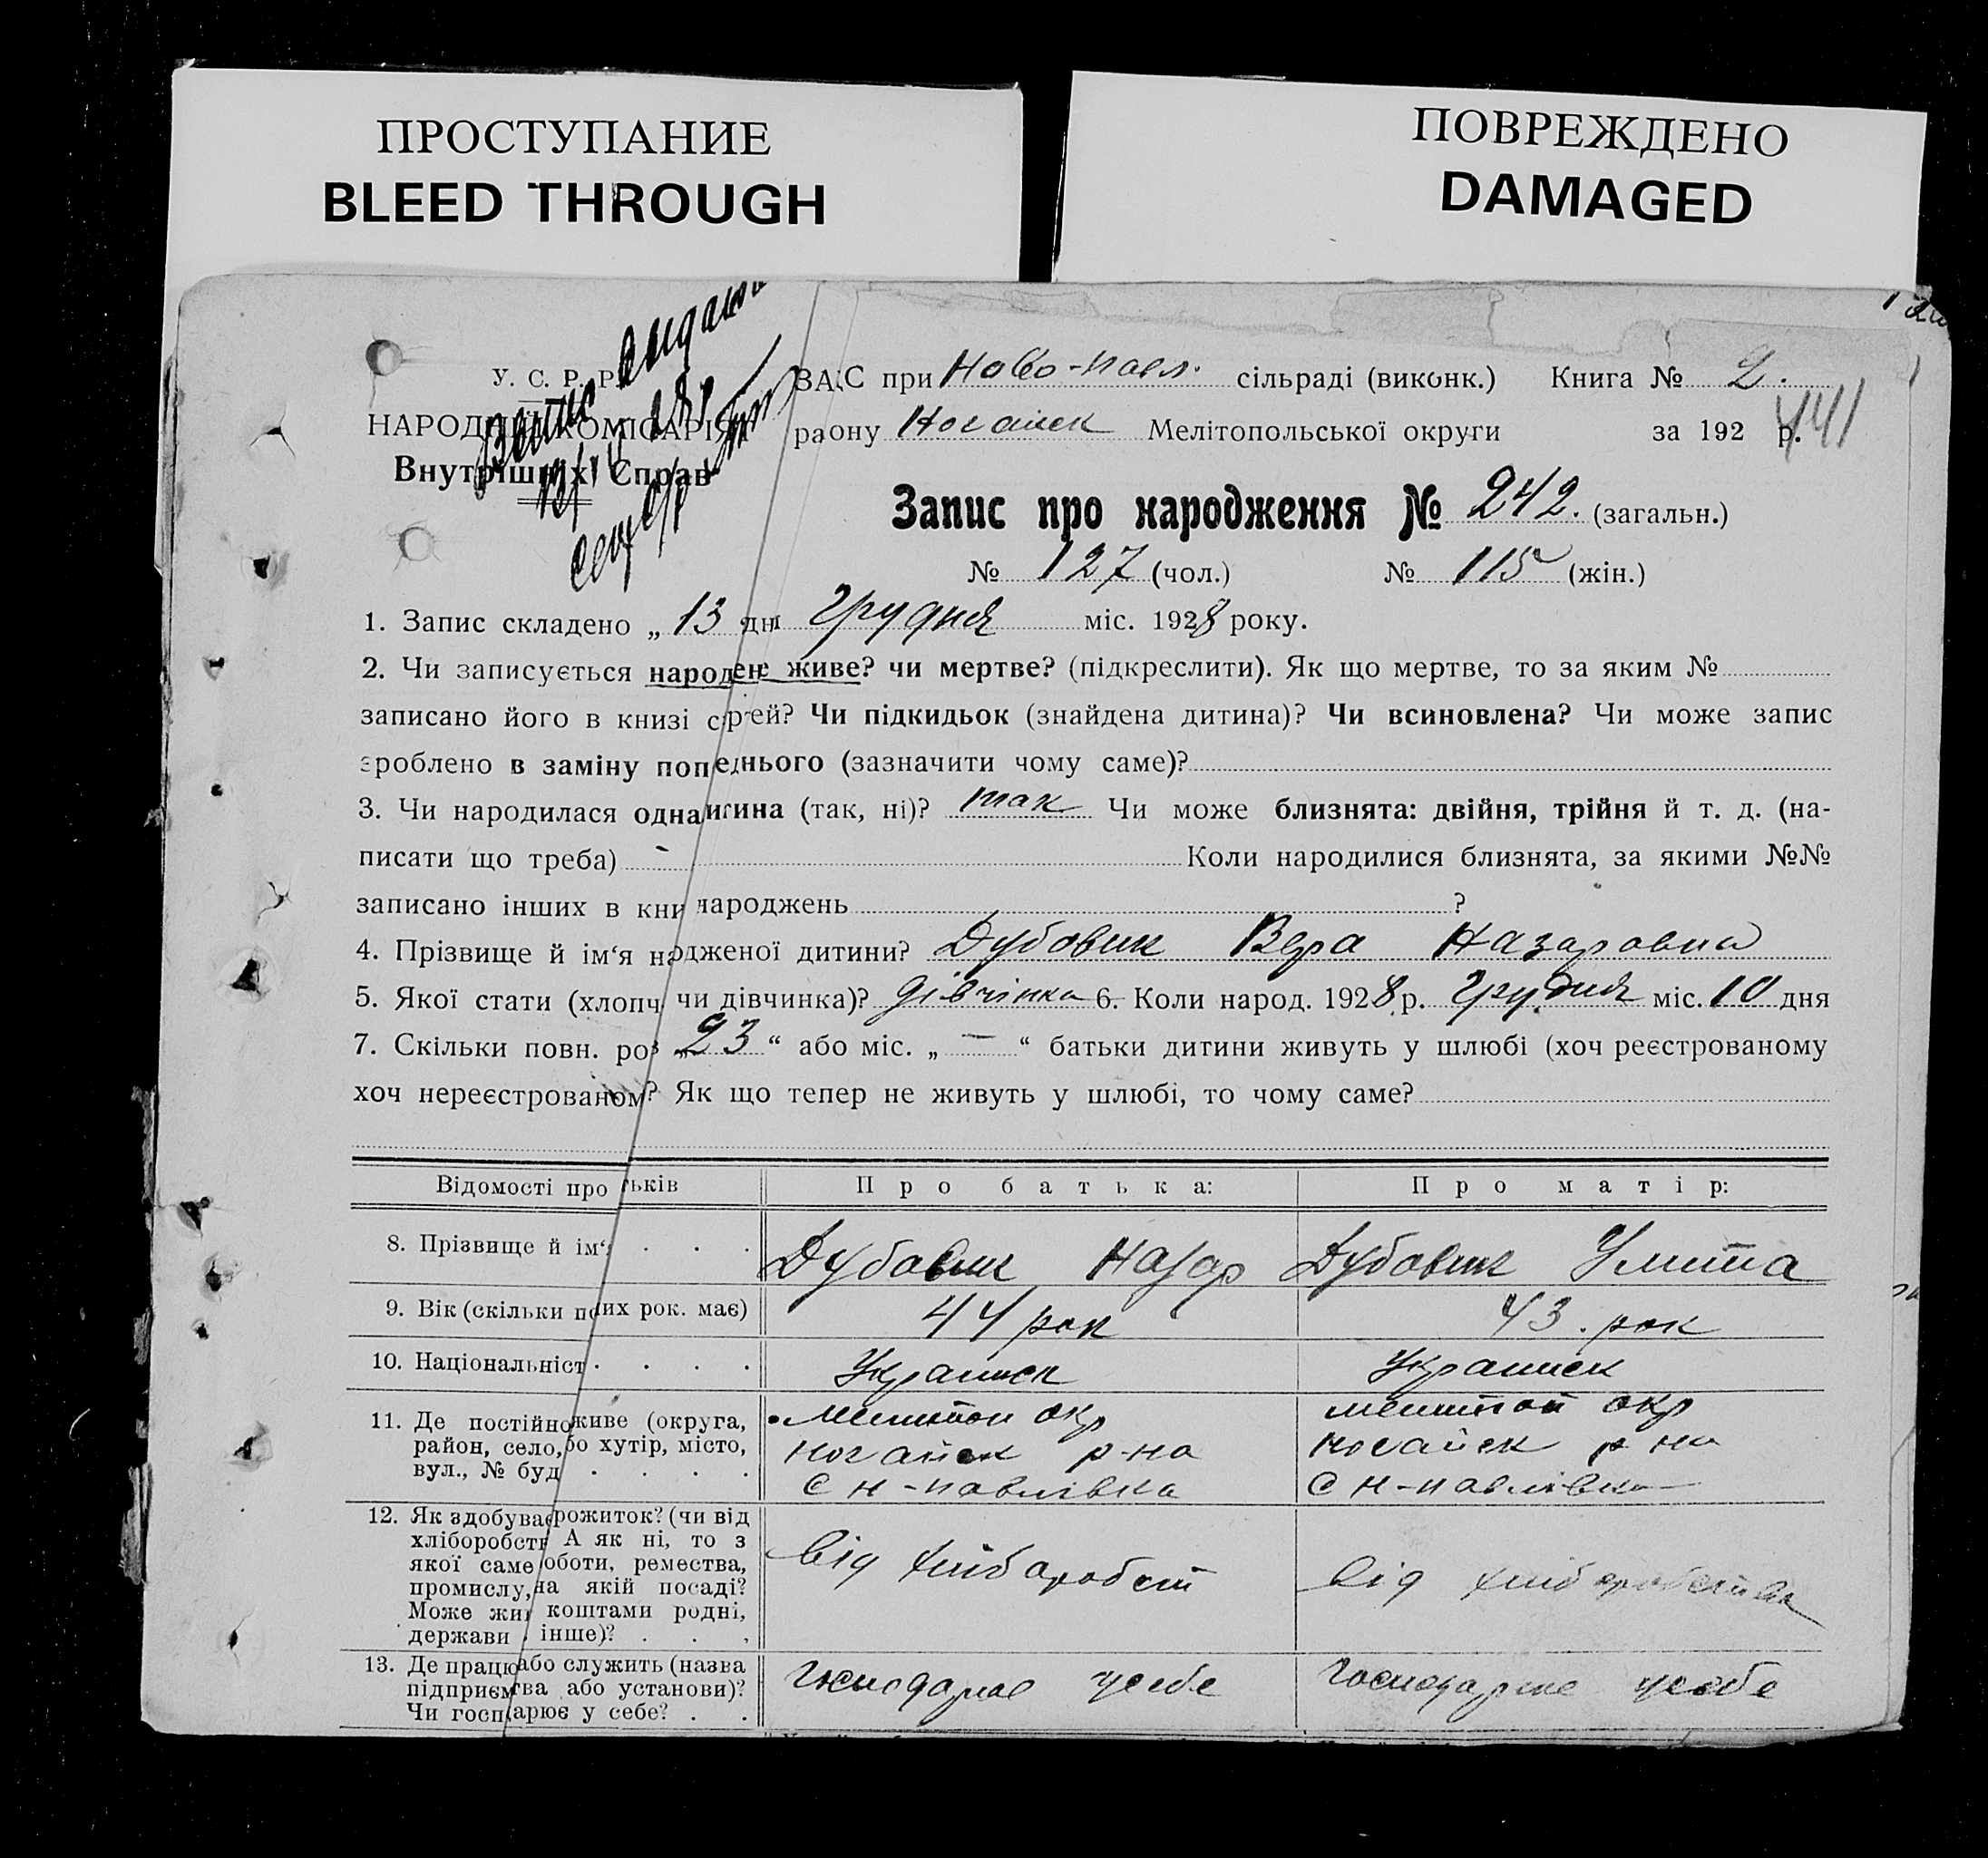 ПРОСТУПАНИЕ
BLEED THROUGH
ПОВРЕЖДЕНО
DAMAGED
У. С. Р. Р.
НАРОДНИЙ КОМІСАРІЯТ
Внутрішніх Справ
ЗАГС при Ново-павл. сільраді (виконк.) Книга № 2.
441
району Ногайск Мелітопольської округи за 192 р.
Запис про народження № 242. (загальн.)
№ 127 (чол.) № 115 (жін.)
1. Запис складено „ 13 дня грудня міс. 1928 року.
2. Чи записується народжене живе? чи мертве? (підкреслити). Як що мертве, то за яким №
записано його в книзі смертей? Чи підкидьок (знайдена дитина)? Чи всиновлена? Чи може запис
зроблено в заміну попереднього (зазначити чому саме)?
3. Чи народилася одна дитина (так, ні)? так Чи може близнята: двійня, трійня й т. д. (на-
писати що треба) - Коли народилися близнята, за якими №№
записано інших в книзі народжень ?
4. Прізвище й ім‘я народженої дитини? Дубовик Вера Назаровна
5. Якої стати (хлопч. чи дівчинка)? дівчінка 6. Коли народ. 1928 р. грудня міс. 10 дня
7. Скільки повн. років „ 23 “ або міс. „ — “ батьки дитини живуть у шлюбі (хоч реєстрованому
хоч нереєстрованому)? Як що тепер не живуть у шлюбі, то чому саме?
Відомості про батьків Про батька: Про матір:
8. Прізвище й ім‘я . . . Дубовик Назар Дубовик Улита
9. Вік (скільки повних рок. має) 44 рок 43. рок
10. Національність . . . . Украинск Украинск
11. Де постійно живе (округа,
район, село, або хутір, місто,
вул., № буд. . . . .
мелитоп окр
ногайск р-на
с н-павлівка
мелитоп окр
ногайск р на
с н-павлівка
12. Як здобуває прожиток? (чи від
хліборобства? А як ні, то з
якої саме роботи, ремества,
промислу, на якій посаді?
Може живе коштами родні,
держави чи інше)? . . .
від хлібаробст
від хлібаробства
13. Де працює або служить (назва
підприємства або установи)?
Чи господарює у себе? . .
Господарює у себе
Господарює у себе